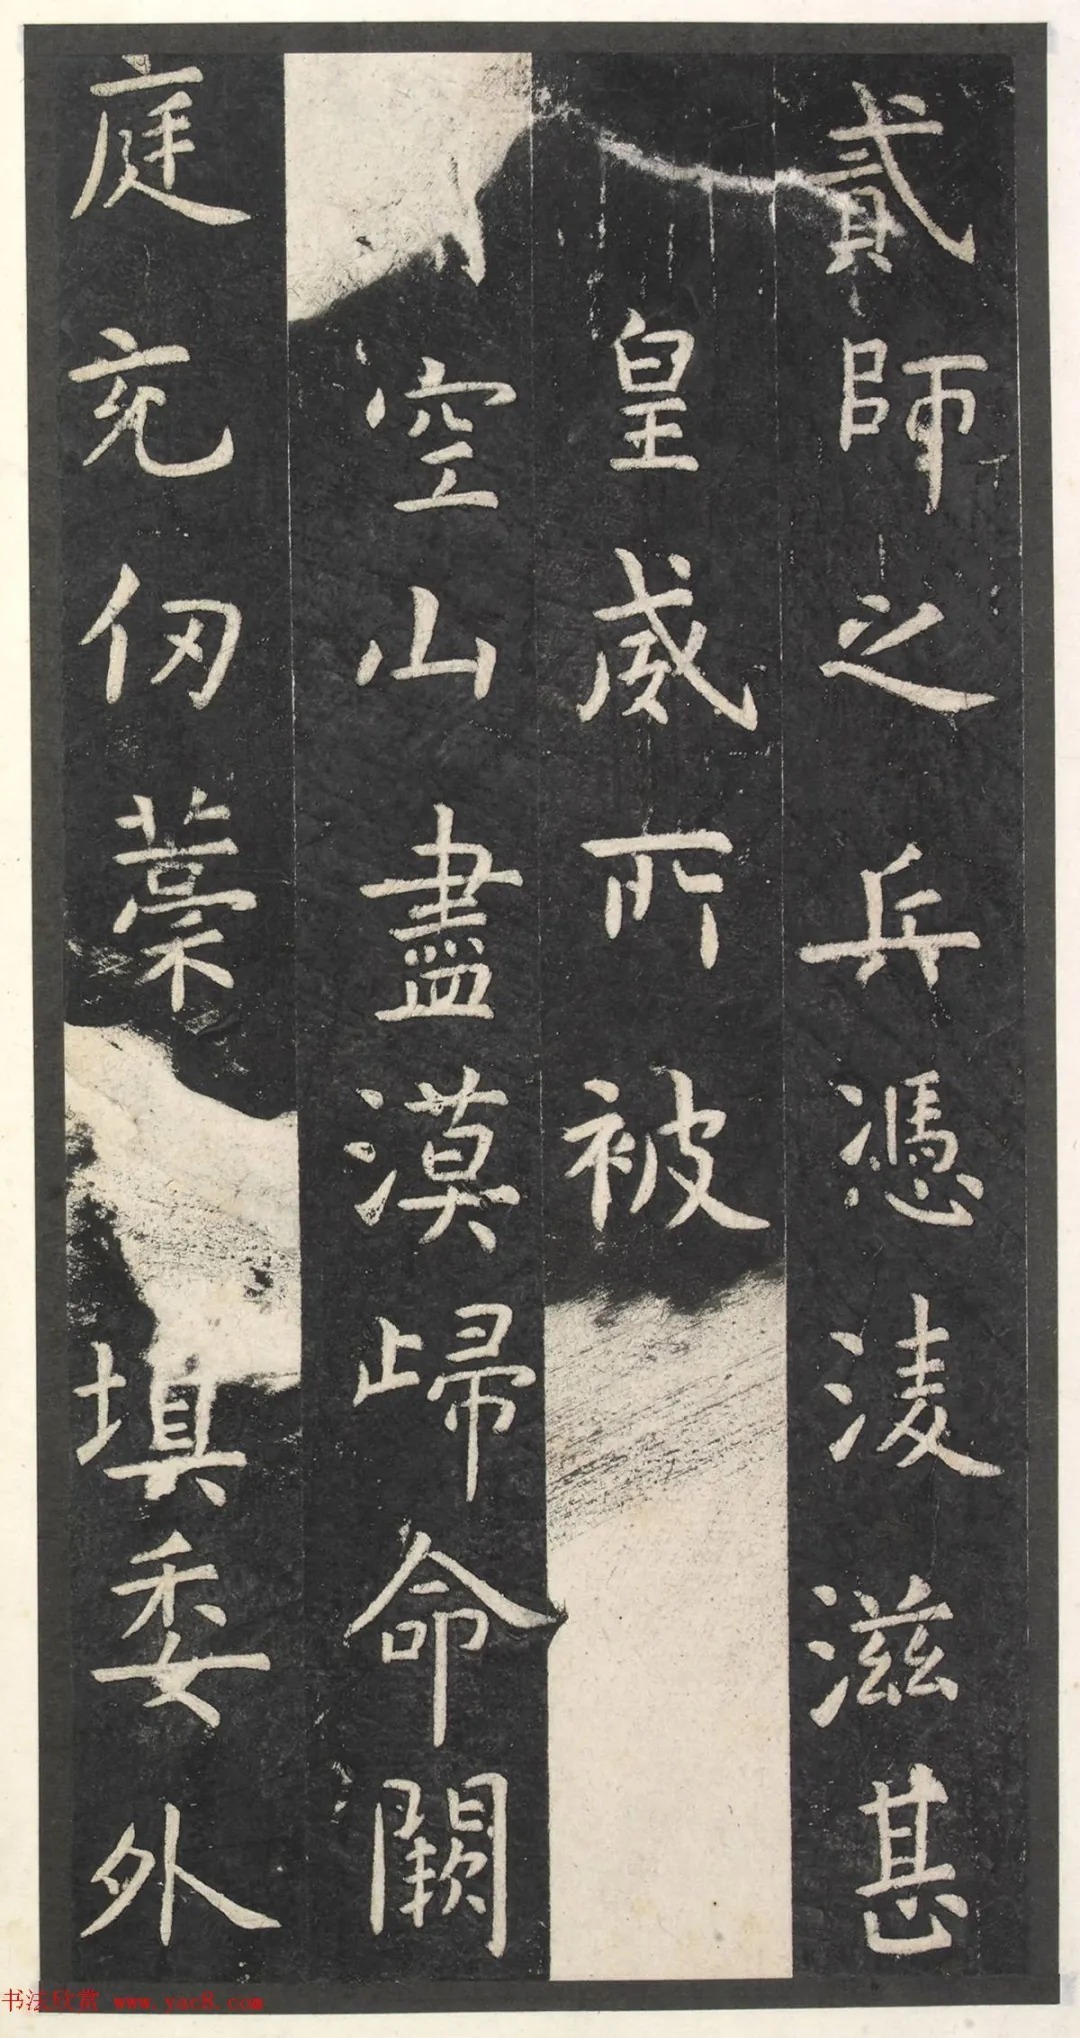 貳師之兵憑淩滋甚
皇威所被
空山盡漠歸命闕
庭充仞藁填委外
书法欣赏 www.yac8.com